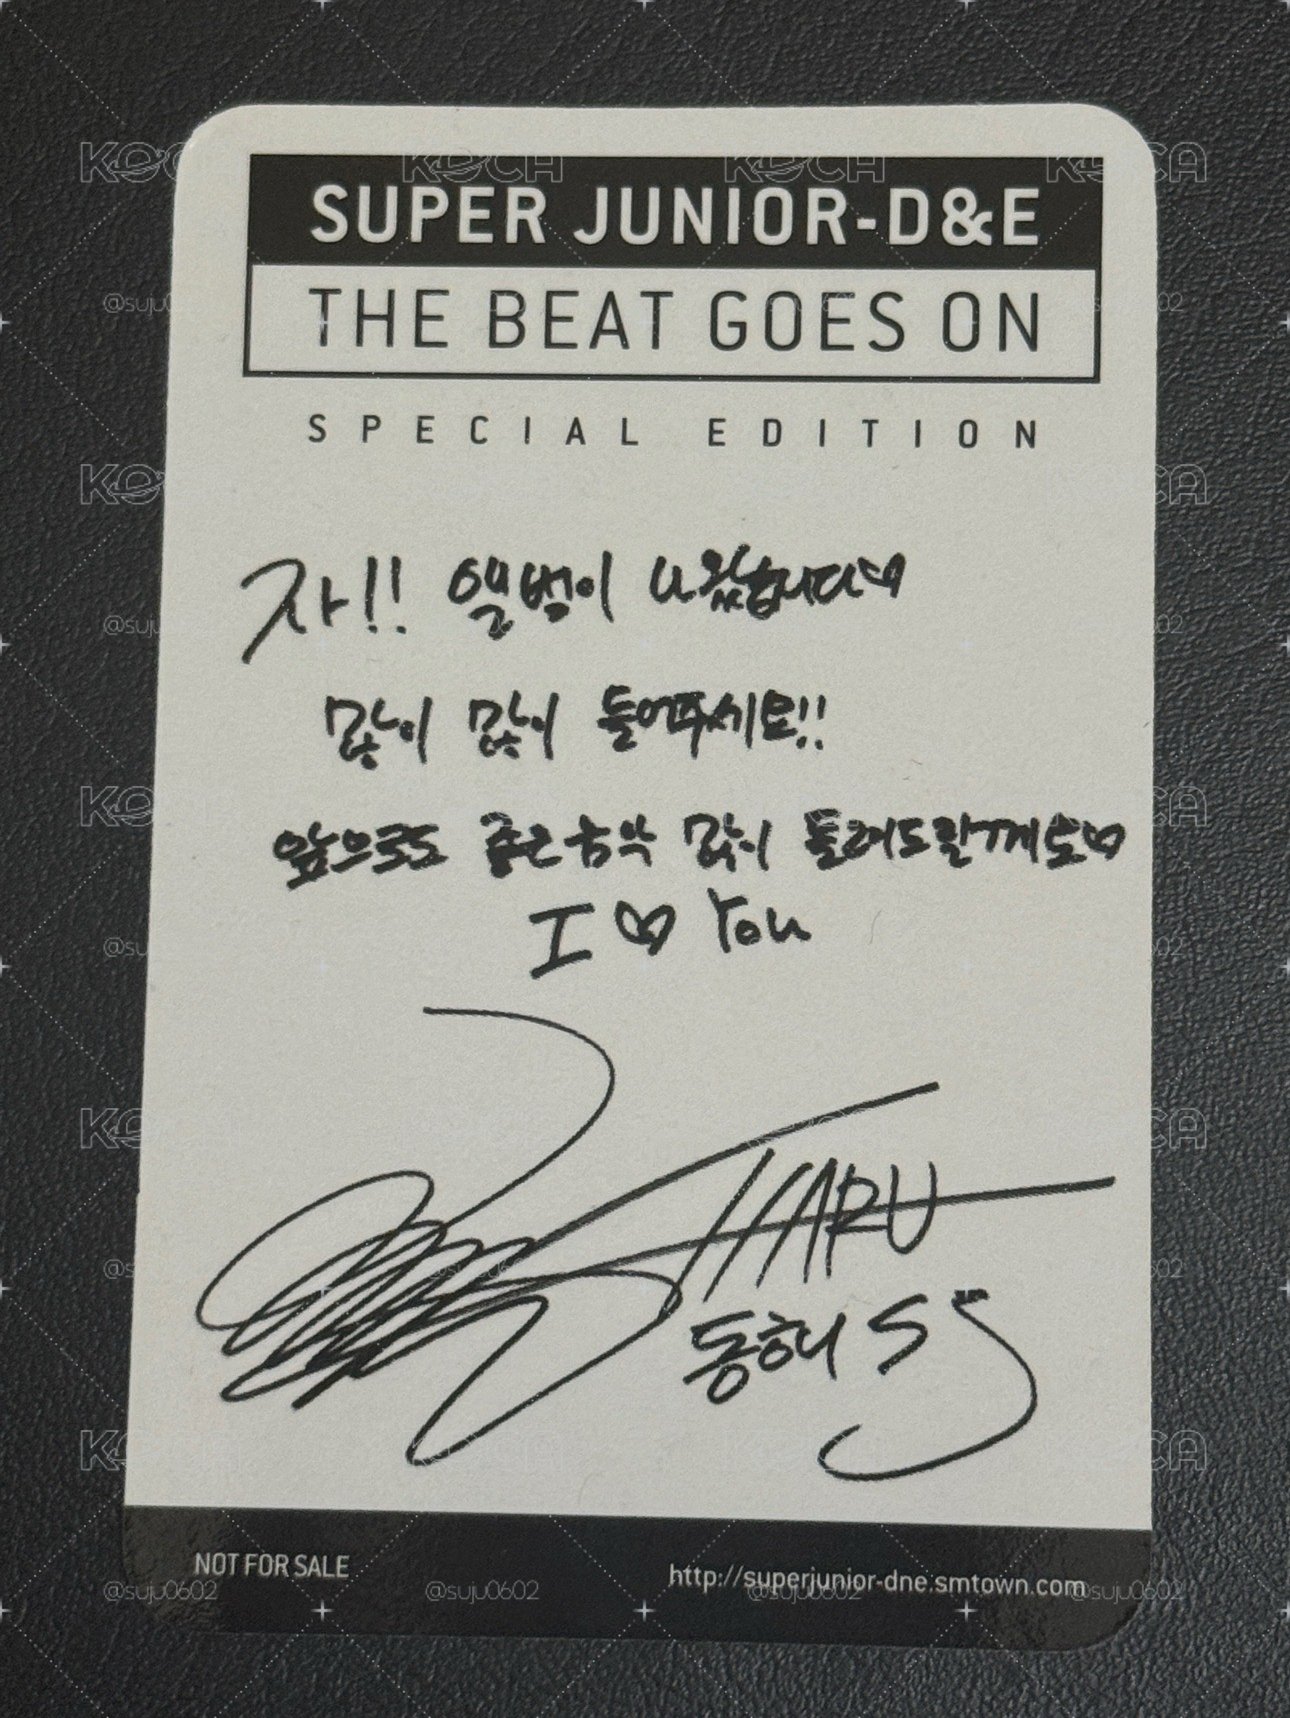 SUPER JUNIOR-D&E
THE BEAT GOES ON
SPECIAL EDITION
자!! 앨범이 나왔습니다♡
많이 많이 들어주세요!!
앞으로도 좋은음악 많이 들려드릴께요♡
I ♡ You
HARU
동해 SJ
NOT FOR SALE
http://superjunior-dne.smtown.com
KOCA
@suju0602